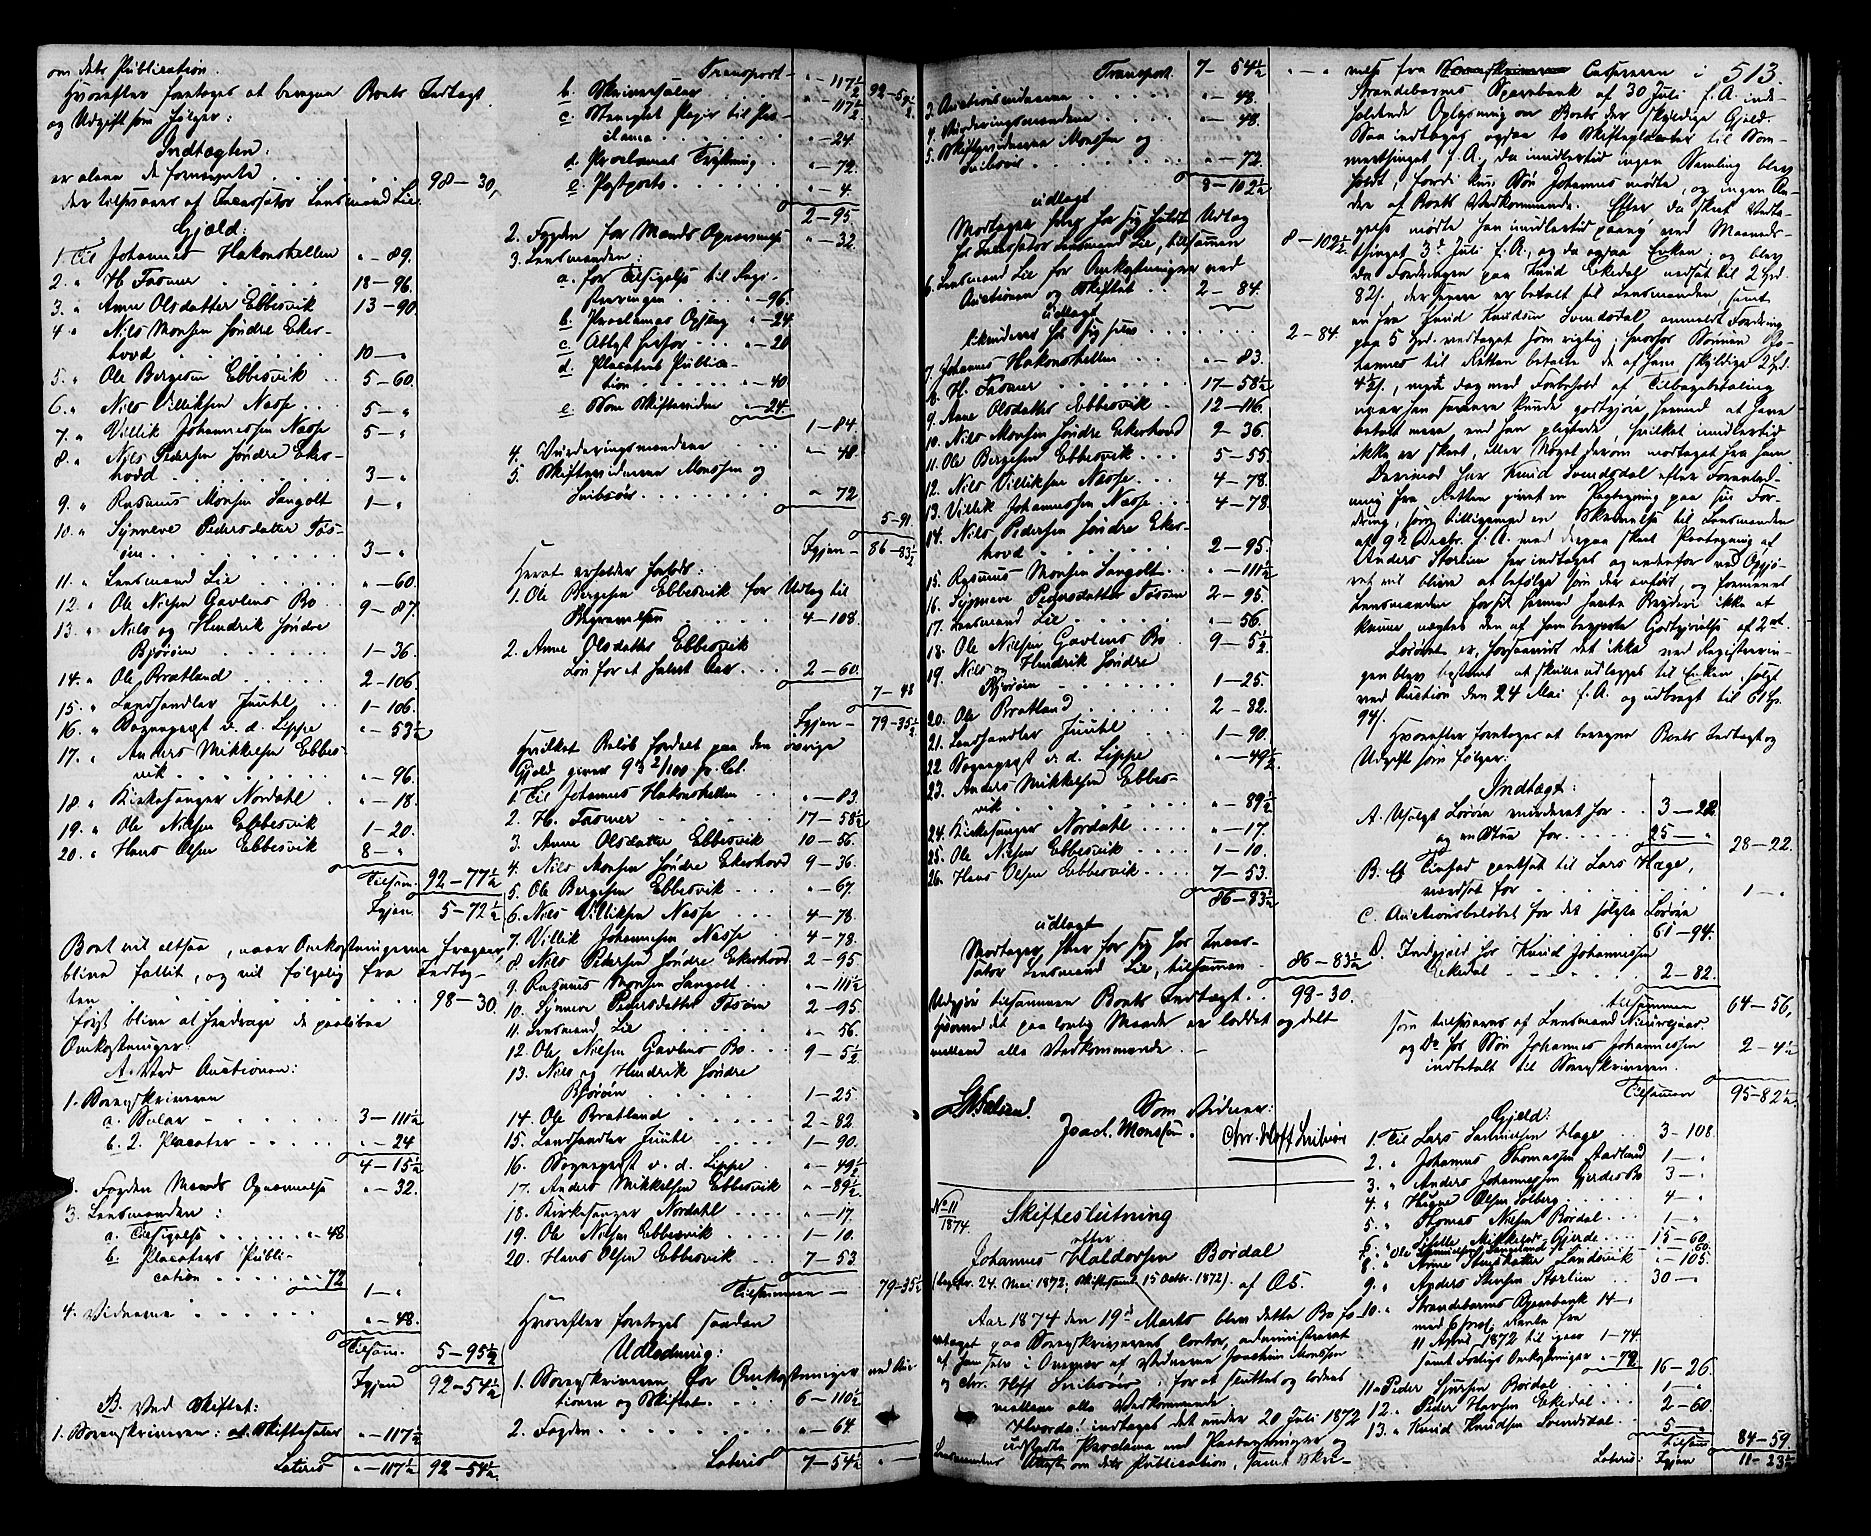 om dets Publication.
Hvorefter foretoges at beregne Boets Indtægt
og Udgift som følger:
Indtægten:
er alene de fornævnte 98-30,
der tilsvares af Incassator Lensmand Lie.
Gjæld:
1. Til Johannes Hakonshellen " - 89.
2. " H. Fasmer 18-96.
3. " Anne Olsdatter Ebbesvik 13-90
4. " Nils Monsen Søndre Eker-
hovd 10 - "
5. " Ole Bergesen Ebbesvik 5-60.
6. " Nils Villiksen Næsse 5 - "
7. " Villik Johannessen Næsse 5 - "
8. " Nils Pedersen Søndre Eker-
hovd 3 - "
9. " Rasmus Monsen Sangolt 1 - "
10. " Synneve Pedersdatter Tøs-
øen 3 - "
11. " Lensmand Lie " - 60.
12. " Ole Nielsen Gavlens Bo 9-87.
13. " Nils og Hendrik Søndre
Bjorøen 1-36.
14. " Ole Bratland 2-106.
15. " Landhandler Juuhl 1-106.
16. " Sogneprest v. d. Lippe " - 53½
17. " Anders Mikkelsen Ebbes-
vik " - 96.
18. " Kirkesanger Nordahl " - 18.
19. " Ole Nielsen Ebbesvik 1-20.
20. " Hans Olsen Ebbesvik 8 - "
Tilsam. 92-77½
Igjen 5-72½
Boet vil altsaa, naar Omkostningerne fragaaer,
blive fallit, og vil følgelig fra Indtæg-
ten 98-30.
først blive at fradrage de paaløbne
Omkostninger:
A. Ved Auctionen:
1. Sorenskriveren
a. Salær 3-111½
b. 2 Placater " - 24
4-15½
2. Fogden Mands Opnævnelse " - 32.
3. Lensmanden:
a. Tilsigelse " - 48
b. Placaters Publi-
cation " - 72
1 - "
4. Vidnerne " - 48.
Tilsam. 5-95½
Igjen 92-54½
B. Ved Skiftet:
1. Sorenskriveren: a. Skiftesalær " - 117½
Lateris " - 117½ 92-54½
Transport " - 117½ 92-54½
b. Skriversalær " - 117½
c. Stemplet Papir til Pro-
clama " - 24
d. Proclamas Trykning " - 72.
e. Postporto " - 4.
2-95.
2. Fogden for Mands Opnævnelse " - 32.
3. Lensmanden:
a. for Tilsigelse til Regi-
streringen " - 96.
b. Proclamas Opslag " - 24.
c. Attest herfor " - 20
d. Placaters Publica-
tion " - 40.
e. Som Skiftevidne " - 24.
1-84.
4. Vurderingsmændene " - 48.
5. Skiftevidnerne Monssen og
Sribsøe " - 72
5-91.
Igjen - 86-83½
Heraf erholder forlods:
1. Ole Bergesen Ebbesvik for Udlæg til
Begravelsen 4-108.
2. Anne Olsdatter Ebbesvik
Løn for et halvt Aar 2-60.
7-48
Igjen - 79-35½
Hvilket Beløb fordelt paa den øvrige
Gjæld giver 93 2/100 pr. Ct.
1. Til Johannes Hakonshellen " - 83.
2. H. Fasmer 17-58½
3. Anne Olsdatter Ebbesvik 10-56.
4. Nils Monsen Søndre Ekerhovd 9-36.
5. Ole Bergesen Ebbesvik " - 67.
6. Nils Villiksen Næsse 4-78.
7. Villik Johannesen Næsse 4-78.
8. Nils Pedersen Søndre Ekerhovd 2-95
9. Rasmus Monsen Sangolt " - 111½
10. Synneve Pedersdatter Tøsøen 2-95.
11. Lensmand Lie " - 56.
12. Ole Nielsen Gavlens Bo 9-5½
13. Nils og Hendrik Søndre
Bjorøen 1-25
14. Ole Bratland 2-82.
15. Landhandler Juuhl 1-90.
16. Sogneprest v. d. Lippe " - 49½
17. Anders Mikkelsen Ebbesvik " - 89½
18. Kirkesanger Nordahl " - 17.
19. Ole Nielsen Ebbesvik 1-10.
20. Hans Olsen Ebbesvik 7-53.
Tilsammen - 79-35½
Hvorefter foretoges saadan
Udlodning:
1. Sorenskriveren for Omkostninger ved Au-
ctionen og Skiftet 6-110½
2. Fogden " - 64.
Lateris 7-54½ " - "
Transport 7-54½ " - "
3. Auctionsvidnerne " - 48.
4. Vurderingsmændene " - 48.
5. Skiftevidnerne Monssen og
Sribsøe " - 72.
8-102½
udlagt
Modtager hver for sig heldst Udlæg
hos Incassator Lensmand Lie, tilsammen 8-102½
6. Lensmand Lie for Omkostninger ved
Auctionen og Skiftet 2-84.
udlagt
likvideres hos sig selv 2-84.
7. Johannes Hakonshellen " - 83.
8. H. Fasmer 17-58½
9. Anne Olsdatter Ebbesvik 12-116.
10. Nils Monsen Søndre Ekerhovd 9-36.
11. Ole Bergesen Ebbesvik 5-55.
12. Nils Villiksen Næsse 4-78.
13. Villik Johannessen Næsse 4-78.
14. Nils Pedersen Søndre Eker-
hovd 2-95.
15. Rasmus Monsen Sangolt " - 111½
16. Synneve Pedersdatter Tøsøen 2-95
17. Lensmand Lie " - 56.
18. Ole Nielsen Gavlens Bo 9-5½
19. Nils og Hendrik Søndre
Bjorøen 1-25.
20. Ole Bratland 2-82.
21. Landhandler Juuhl 1-90.
22. Sogneprest v. d. Lippe " - 49½
23. Anders Mikkelsen Ebbes-
vik " - 89½
24. Kirkesanger Nordahl " - 17.
25. Ole Nielsen Ebbesvik 1-10.
26. Hans Olsen Ebbesvik 7-53.
86-83½
udlagt
Modtager hver for sig hos Incas-
sator Lensmand Lie, tilsammen 86-83½
Udgjør tilsammen Boets Indtægt 98-30.
Hvormed det paa lovlig Maade er loddet og delt
mellem alle Vedkommende.
Som Vidner:
Joach. Monssen. Chr. Hoff Sribsøe
No 11
1874.
Skifteslutning
efter
Johannes Haldorsen Børdal
(Registr. 24. Mai 1872; Skiftesaml. 15 Octbr. 1872). af Os.
Aar 1874 den 19de Marts blev dette Bo fo-
retaget paa Sorenskriverens Contor, administreret
af ham selv i Overvær af Vidnerne Joachim Monssen
og Chr. Hoff Sribsøe: for at sluttes og loddes
mellem alle Vedkommende.
Hvorda: indtoges det under 20 Juli 1872
udstædte Proclama med Paategninger og
Lensmandens Attest om dets Publication, samt Skri-
513.
velse fra Casereren i
Strandebarms Sparebank af 30 Juli f. A. inde-
holdende Oplysning om Boets der skyldige Gjæld.
Saa indtoges ogsaa to Skifteplacater til Som-
mertinget f. A., da imidlertid ingen Samling blev
holdt, fordi kun Søn Johannes mødte, og ingen An-
dre af Boets Vedkommende. Efter da skeet Vedta-
gelse mødte han imidlertid paany ved Maaneds-
thinget 3de Juli f. A., og da ogsaa Enken, og blev
da Fordringen paa Knud Ekedal nedsat til 2 Spd.
82 s., der senere er betalt til Lensmanden, samt
en fra Knud Knudsen Svendsdal anmeldt Fordring
paa 5 Spd. vedtaget som rigtig; hvorhos Sønnen Jo-
hannes til Retten betalte de af ham skyldige 2 Spd.
4½ s., mod dog med Forbehold af Tilbagebetaling
naar han senere kunde godtgjøre hermed at have
betalt mere, end han pligtede, hvilket imidlertid
ikke er skeet, eller Noget derom modtaget fra ham.
Derimod har Knud Svendsdal efter Foranled-
ning fra Retten givet en Paategning paa sin For-
dring, hvor tilligemed en Skrivelse til Lensmanden
af 9de Decbr. f. A. med derpaa skeet Paategning af
Anders Storlien her indtoges og nedenfor ved Opgjø-
ret vil blive at befølge som der anført, og formener
Lensmanden forsit hermed førte Bryderi ikke at
kunne nægtes den af ham begjerte Godtgjørelse af 2 ort.
Løsøret er, forsaavidt det ikke ved Registerin-
gen blev bestemt at skulle udlægges til Enken, solgt
ved Auction den 24 Mai f. A. og udbragt til 61 Sp.
94 s.
Hvorefter foretoges at beregne Boets Indtægt og
Udgift som følger:
Indtægt:
A. Usolgt Løsøre vurderet for 3-22
og en Stue for 25 - "
28-22.
B. Et Tinfad pantsat til Lars Hage,
værdsat for 1 - "
C. Auctionsbeløbet for det solgte Løsøre
61-94.
D. Indgjæld hos Knud Johannessen
Ekedal 2-82.
tilsammen 64-56,
som tilsvares af Lensmand
og Do hos Søn Johannes Johannessen
indbetalt til Sorenskriveren. 2-4½
Tilsammen 95-82½
Gjæld:
1. Til Lars Samuelsen Hage 3-108.
2. " Johannes Thomassen Nadland 1 - "
3. " Anders Johannessen Gjerdes Bo 3 - "
4. " Haagen Olsen Solberg 4 - "
5. " Thomas Nielsen Børdal 1 - "
6. " Mikkelsdr Gjerde 15-60.
7. " Ole Samuelsen Søreland " - 60.
8. " Anne Landsvik " - 105.
9. " Anders Stensen Storlien 30 - "
10. " Strandebarms Sparebank 14 - "
med 6 proC. Rente fra
11 April 1872 til igaar 1-74.
samt Forligs Omkostninger " - 79.
16-26.
11. Peder Sjursen Børdal 1 - "
12. " Peder Havsen Ekedal 2-60
13. " Knud Knudsen Svendsdal 5 - "
Tilsam 84-59
Lateris: Igjen 11-23½